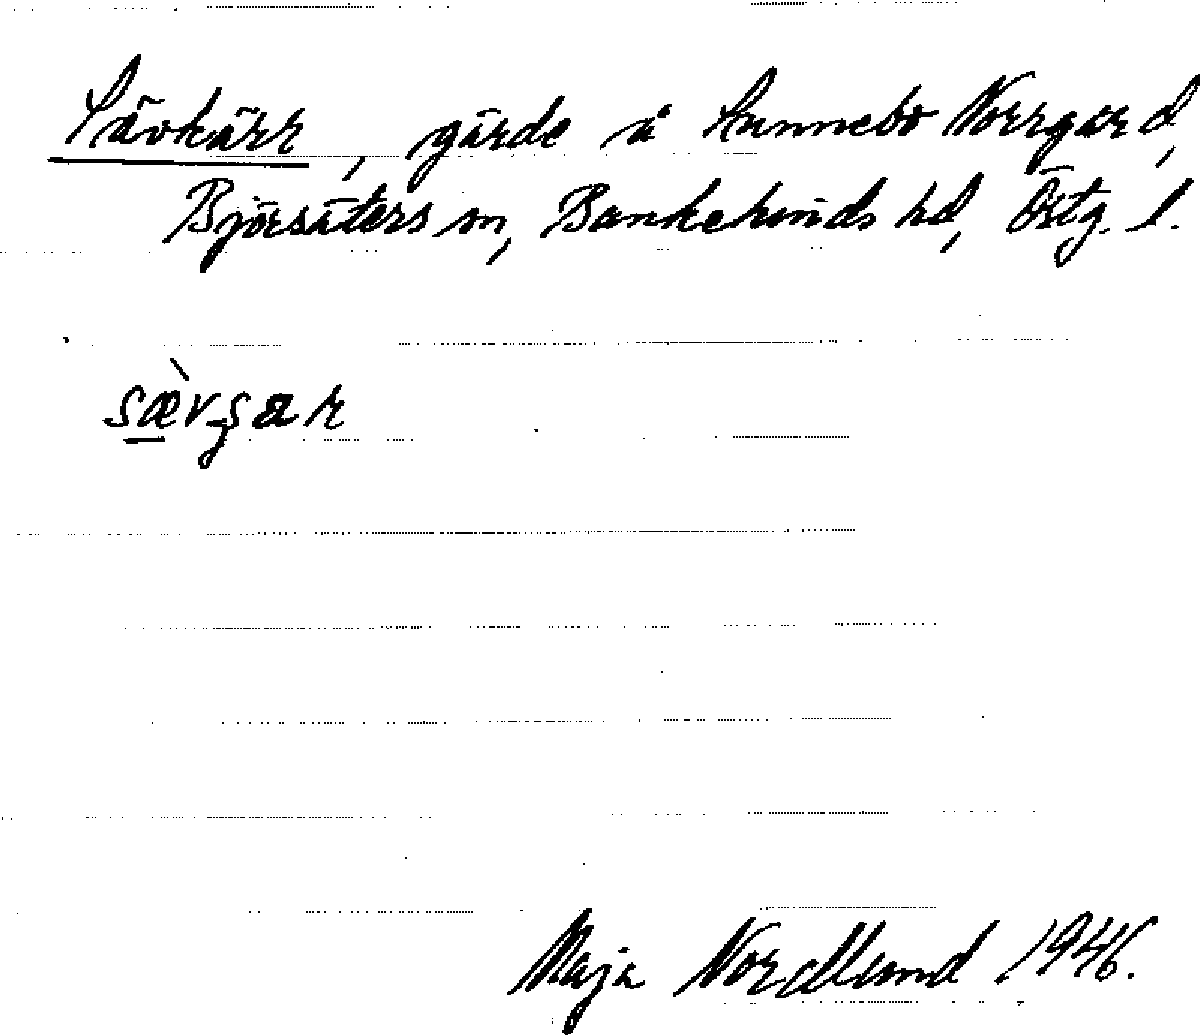 Sävkärr, gärde å Lunnebo Norrgård,
Björsäters sn, Bankekinds hd, Östg. l.
Maja Nordlund 1946.